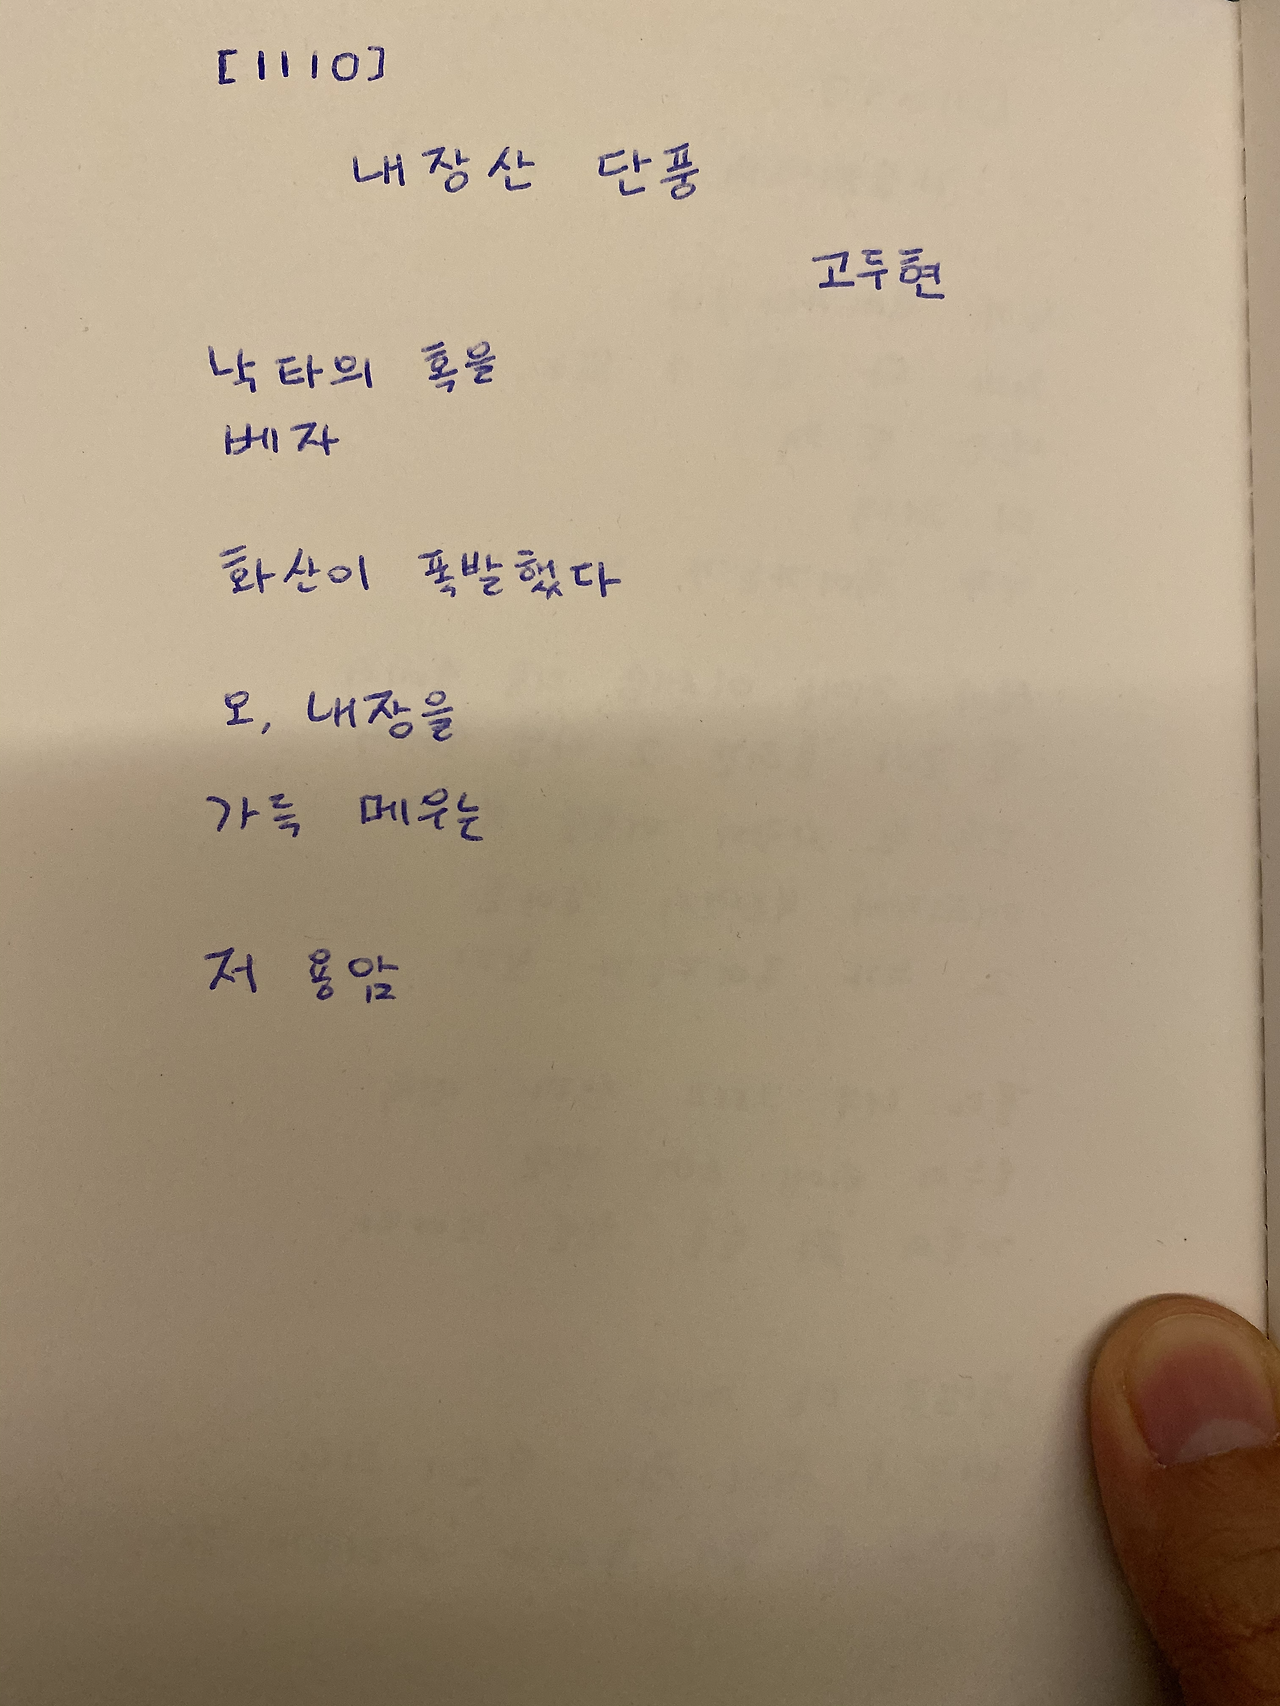 [1110]
내장산 단풍
고두현
낙타의 혹을
베자
화산이 폭발했다
오, 내장을
가득 메우는
저 용암